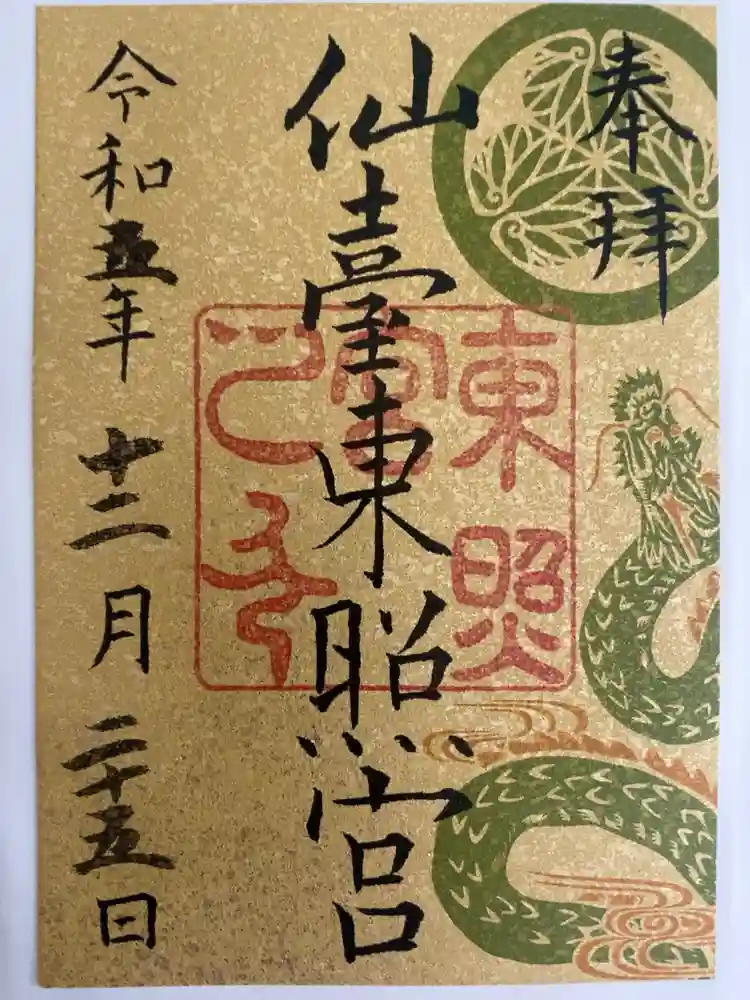 奉拝
仙臺東照宮
東照
宮
之印
令和五年十二月二十五日